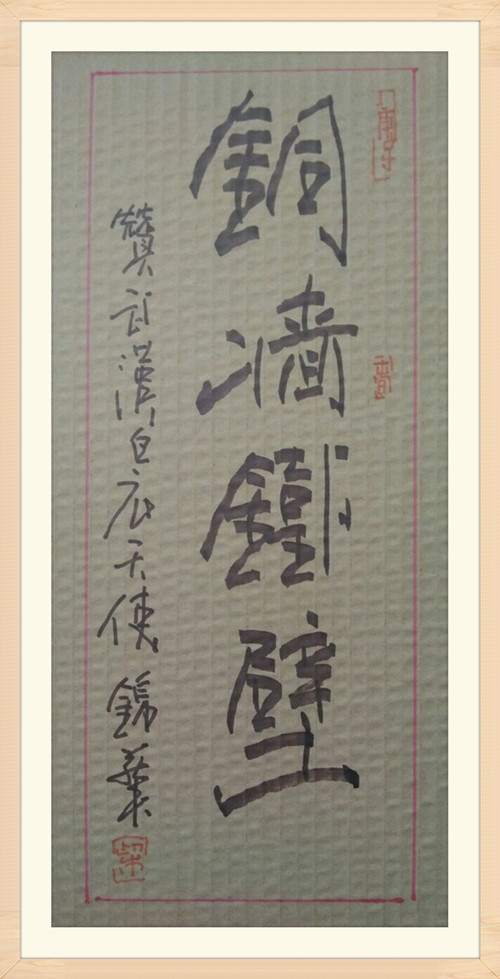 銅墻鐵壁
贊武漢白衣天使 錦華